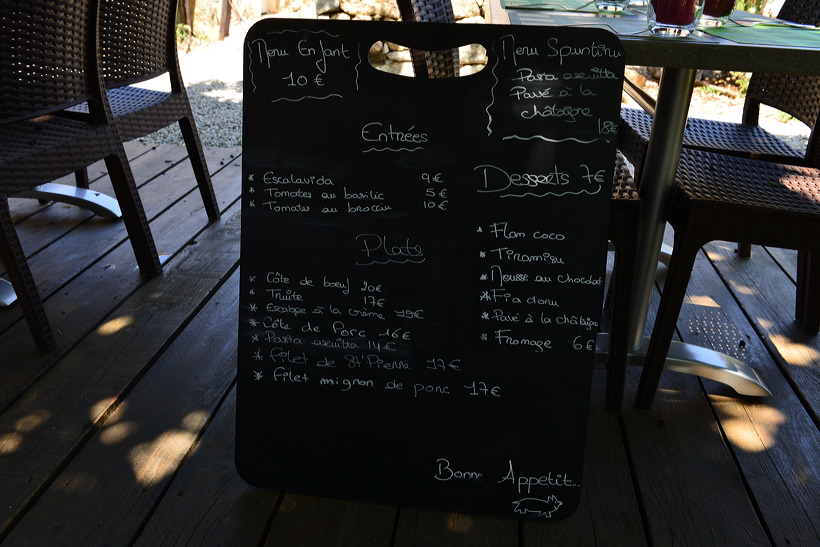 Menu Enfant
10 €
Menu Spuntinu
Pasta asciutta
Pavé à la
châtaigne
18€
Entrées
* Escalavida 9€
* Tomates au basilic 5€
* Tomates au brocciu 10€
Plats
* Côte de bœuf 20€
* Truite 17€
* Escalope à la crème 19€
* Côte de Porc 16€
* Pasta asciutta 14€
* Filet de St Pierre 17€
* filet mignon de porc 17€
Desserts 7€
* Flan coco
* Tiramisu
* Mousse au chocolat
* Fiadonu
* Pavé à la châtaigne
* Fromage 6€
Bonne Appetit...